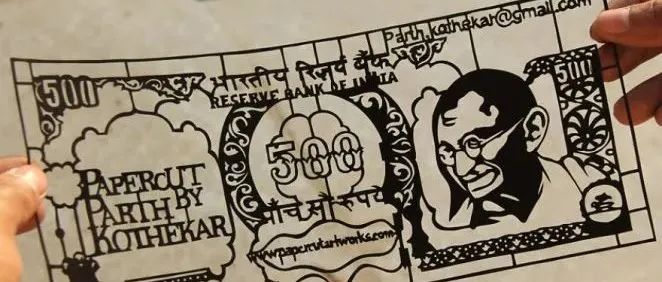 Parth.kothekar@gmail.com
500
भारतीय रिज़र्व बैंक
500
RESERVE BANK OF INDIA
PAPERCUT
PARTH BY
KOTHEKAR
500
पाँच सौ रुपये
www.papercutartworks.com